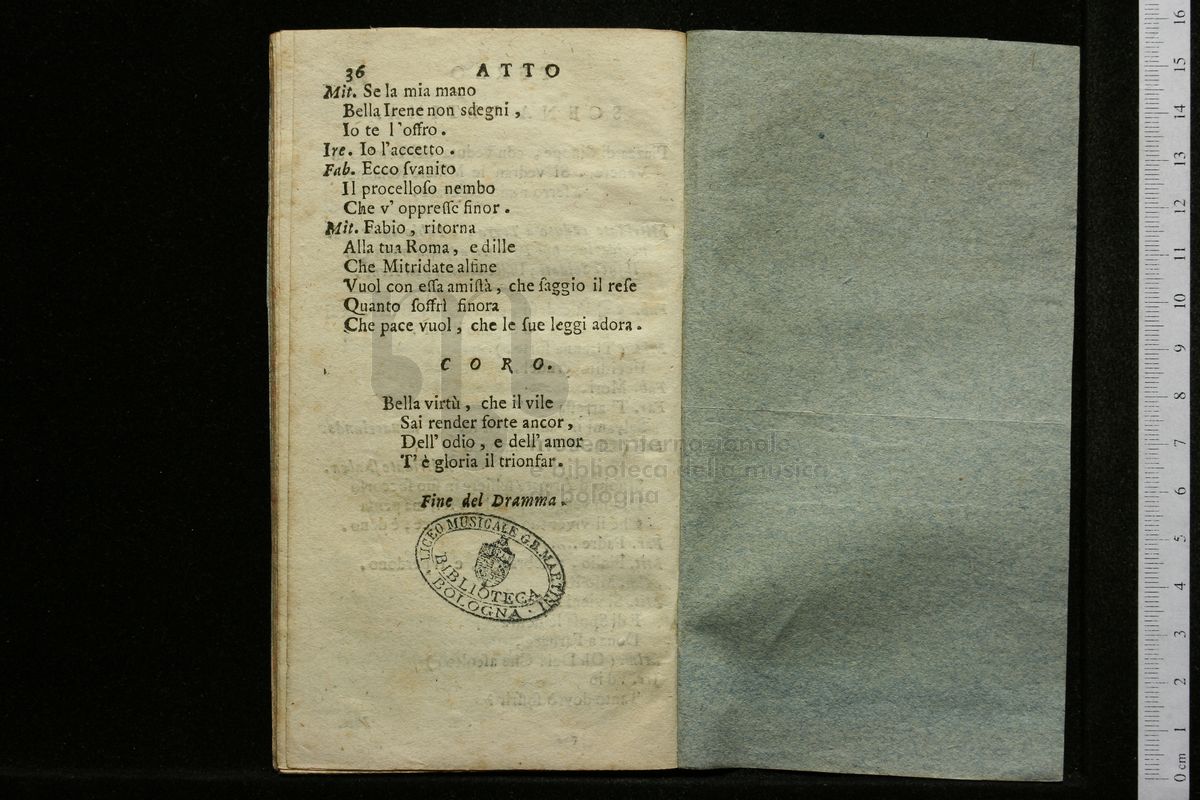 36 ATTO
Mit. Se la mia mano
Bella Irene non sdegni ,
Io te l'offro .
Ire. Io l'accetto .
Fab. Ecco ſvanito
Il procelloſo nembo
Che v' oppreſſe finor .
Mit. Fabio , ritorna
Alla tua Roma , e dille
Che Mitridate alfine
Vuol con eſſa amiſtà , che ſaggio il reſe
Quanto ſoffrì finora
Che pace vuol , che le ſue leggi adora .
CORO.
Bella virtù , che il vile
Sai render forte ancor ,
Dell' odio , e dell' amor
T' è gloria il trionfar .
Fine del Dramma .
LICEO MUSICALE G.B. MARTINI
BIBLIOTECA
BOLOGNA
museo internazionale
e biblioteca della musica
bologna
0 cm 1 2 3 4 5 6 7 8 9 10 11 12 13 14 15 16